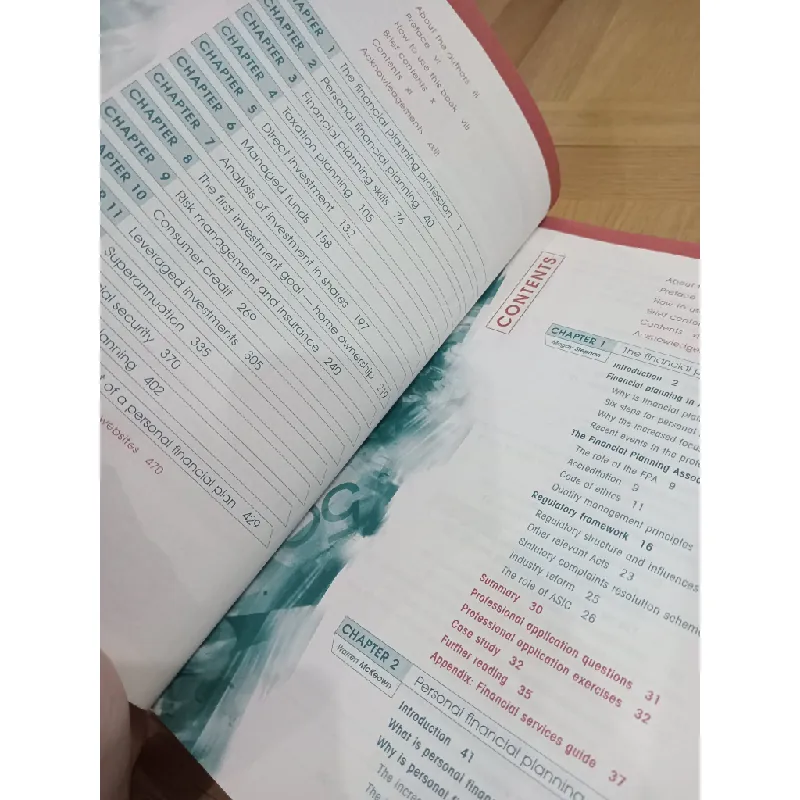 About the authors iii
Preface vi
How to use this book viii
Brief contents x
Contents xi
Acknowledgements xviii
CHAPTER 1 The financial planning profession 1
CHAPTER 2 Personal financial planning 40
CHAPTER 3 Financial planning skills 76
CHAPTER 4 Taxation planning 105
CHAPTER 5 Direct investment 133
CHAPTER 6 Managed funds 158
CHAPTER 7 Analysis of investment in shares 197
CHAPTER 8 The first investment goal — home ownership
CHAPTER 9 Risk management and insurance 240
APTER 10 Consumer credit 269
11 Leveraged investments 305
Superannuation 335
cial security 370
planning 402
t of a personal financial plan 429
websites 470
CONTENTS
About
Preface
How to us
Brief conten
Contents
Acknowledge
CHAPTER 1 The financial p
Introduction 2
Financial planning in
Why is financial plan
Six steps for personal
Why the increased focus
Recent events in the profe
The Financial Planning Assoc
The role of the FPA 9
Accreditation 9
Code of ethics 11
Quality management principles
Regulatory framework 16
Regulatory structure and influences
Other relevant Acts 23
Statutory complaints resolution scheme
Industry reform 25
The role of ASIC 26
Summary 30
Professional application questions 31
Professional application exercises 32
Case study 32
Further reading 35
Appendix: Financial services guide 37
CHAPTER 2 Personal financial planning
McKeown
Introduction 41
What is personal finan
Why is personal f
The increa